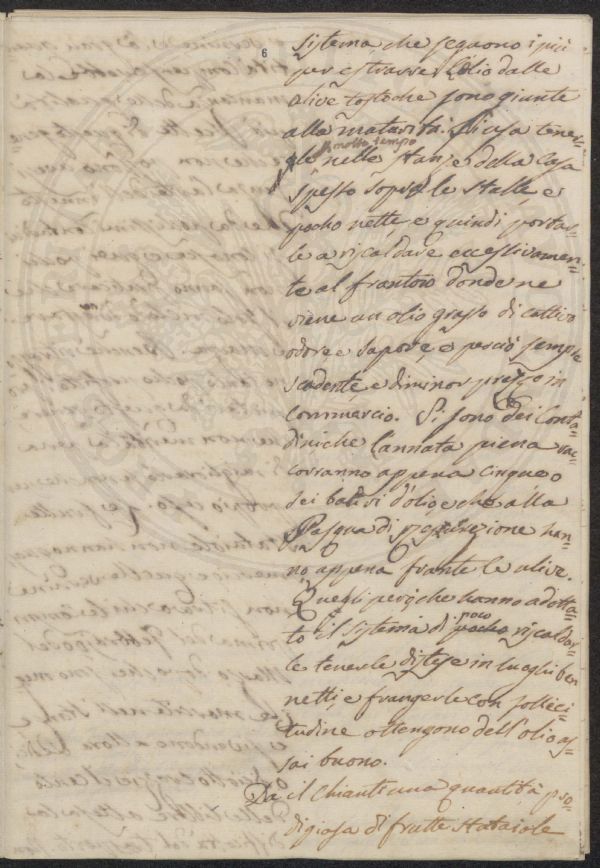 6
sistema, che seguono i più
per estrarre l'olio dalle
olive tostoche sono giunte
alla maturità. Si usa tener-
molto tempo
le nelle stanze della Casa
spesso sopra le stalle, e
poche nette, e quindi portar-
le a riscaldare eccessivamen-
te al frantoio d'onde ne
viene un olio grasso di cattivo
odore, e sapore, e perciò sempre
scadente, e di minor prezzo in
commercio. Vi sono dei Conta-
dini che l'annata piena rac-
corranno appena cinque o
sei barili d'olio, e che alla
Pasqua di Resurrezione han-
no appena frante le ulive.
Quegli però che hanno adotta-
poco
to il sistema di riscaldar-
le tenerle distese in luoghi ben
netti, e frangerle con solleci-
tudine ottengono dell'olio as-
sai buono.
Da il Chianti una quantità pro-
digiosa di frutte stataiole